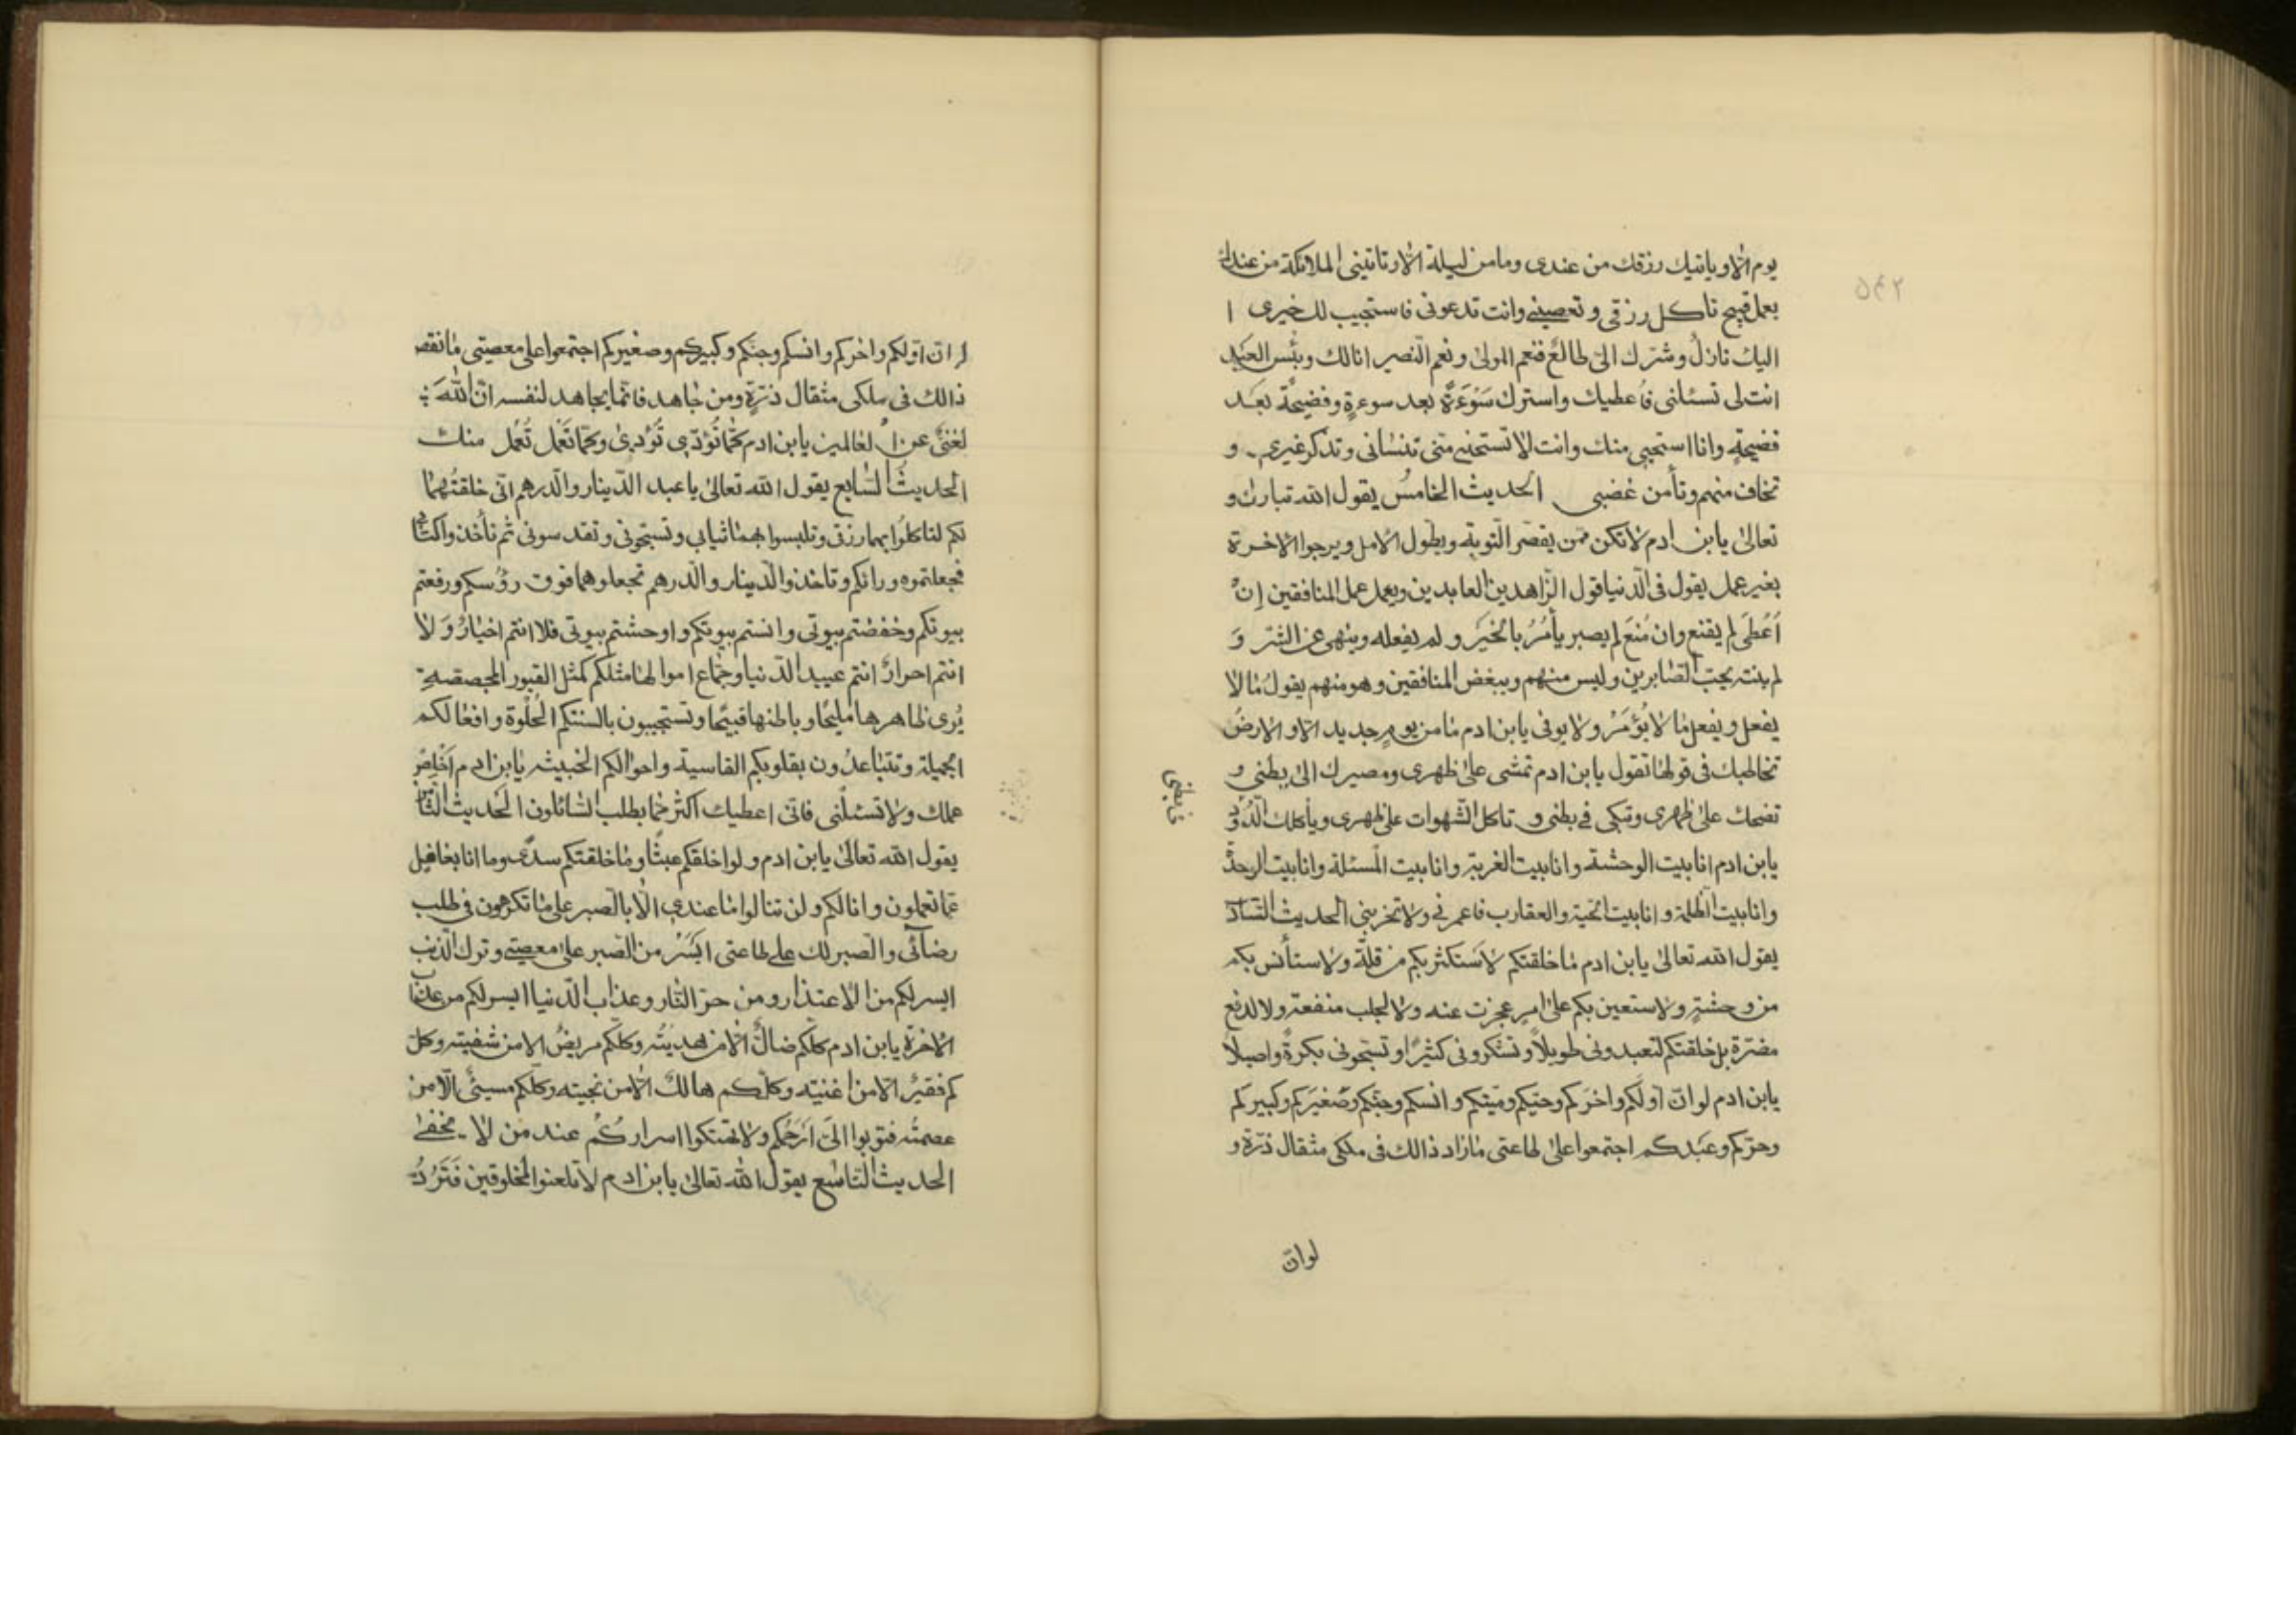 يوم الّا وياتيك رزقك من عندى وما من ليلة الّا وتاتينى الملائكة من عندك
بعمل قبيح تاكل رزقى وتعصينى وانت تدعونى فاستجيب لك خيرى ا
اليك نازلٌ وشرّك الىّ طالعٌ فنعم المولى ونعم النّصير انا لك وبئس العبد
انت لى تسئلنى فاُعطيك واسترك سَوْءَةً بعد سوءةٍ وفضيحةً بعد
فضيحةٍ وانا استحيى منك وانت لا تستحيى منّى تنسانى وتذكر غيرى و
تخاف منهم وتأمن غضبى الحديث الخامسُ يقول الله تبارك و
تعالى يابن ادم لا تكن ممّن يقصّر التوبة ويطول الامل ويرجوا الاخرة
بغير عمل يقول فى الدّنيا قول الزّاهدين العابدين ويعمل عمل المنافقين اِنْ
اُعْطَى لم يقنع وان مُنِعَ لم يصبر يأمُرُ بالخَيْر ولم يفعله وينهى عن الشّر وَ
لم ينته يحبّ الصّابرين وليس منهم ويبغض المنافقين وهو منهم يقولُ ما لا
يفعل ويفعل ما لا يُؤمَرْ ولا يوفى يابن ادم ما من يومٍ جديد الّا والارضُ
تخاطبك فى قولها تقول يابن ادم تمشى على ظهرى ومصيرك الى بطنى و
تضحك على ظهرى وتبكى فى بطنى و تاكل الشّهوات على ظهرى وياكلك الدُّود
فى بطنى
يابن ادم انا بيت الوحشة وانا بيت الغربة وانا بيت المسئلة وانا بيت الوحدة
وانا بيت الظلمة وانا بيت الحيّة والعقارب فاعمرنى ولا تخربنى الحديث السّاد
يقول الله تعالى يابن ادم ما خلقتكم لاَستكثر بكم من قلّة ولا ستأنس بكم
من وحشةٍ ولا ستعين بكم على امرٍ عجزت عنه ولا لجلب منفعة ولا لدفع
مضرّة بل خلقتكم لتعبدونى طويلاً وتشكرونى كثيرًا وتسبّحونى بكرةً واصيلاً
يابن ادم لوانّ اوّلَكم واخرَكم وحيّكم وميّتكم وانسكم وجنّكم وصَغيرَكم وكبيركم
وحرّكم وعَبْدكم اجتمعوا على طاعتى ما زاد ذالك فى ملكى مثقال ذرّة و
لوانّ
لوانّ اوّلكم واخركم وانسكم وجنّكم وكبيركم وصغيركم اجتمعوا على معصيتى ما نقص
ذالك فى ملكى مثقال ذرّةٍ ومن جاهد فانّما يجاهد لنفسه انّ اللهَ
لغنىٌّ عن العالمين يابن ادم كما تُؤذى تُؤذى وكما تَعْمل تُعمل منك
الحديث السّابع يقول الله تعالى يا عبد الدّينار والدّرهم انّى خلقتُهما
لكم لتاكلُوا بهما رزقى وتلبسوا بهما ثيابى وتسبّحونى وتقدسونى ثم تأخذوا كتابى
فجعلتموه ورائكم وتاخذوا الدّينار والدّرهم تجعلوهما فوق رؤسكم ورفعتم
بيوتكم وخفضتم بيوتى وانستم بيوتكم واوحشتم بيوتى فلا انتم اخيارٌ وَ لا
انتم احرارٌ انتم عبيد الدّنيا وجمّاع اموالها مثلكم كمثل القبور المجصّصة
يُرى ظاهرها مليحًا وباطنها قبيحًا وتستجيبون بالسنتكم الحُلْوة وافعالكم
الجميلة وتتباعدُون بقلوبكم القاسية واحوالكم الخبيثه يابن ادم اَخْلِص
عملك ولا تسئلنى فانّى اعطيك اكثر ممّا يطلب السّائلون الحَديث الثّا
يقول الله تعالى يابن ادم ولو اخلقكم عبثًا وما خلقتكم سدًى وما انا بغافل
عمّا تعملون وانّا لكم ولن تنالوا ما عندى الّا بالصبر على ما تكرهون فى طلب
رضائى والصبر لك على طاعتى ايسَرُ من الصبر على معصيتى وترك الذنب
ايسر لكم من الاعتذار ومن حرّ النّار وعذاب الدّنيا ايسر لكم من عذاب
الاخرة يابن ادم كلّكم ضالٌّ الّا من هديتُه وكلّكم مريضٌ الا من شفيته وكلّ
كم فقيرٌ الّا من اغنيته وكلّكم هالكٌ الّا من نجيته وكلّكم مسيئٌ الّا من
عصمتُه فتوبوا الىّ اَرْحَمْكم ولا تهتكوا اسراركُم عند من لا يخفى
الحديث التّاسع يقول الله تعالى يابن ادم لا تلعنوا المخلوقين فَتَرُدُّ